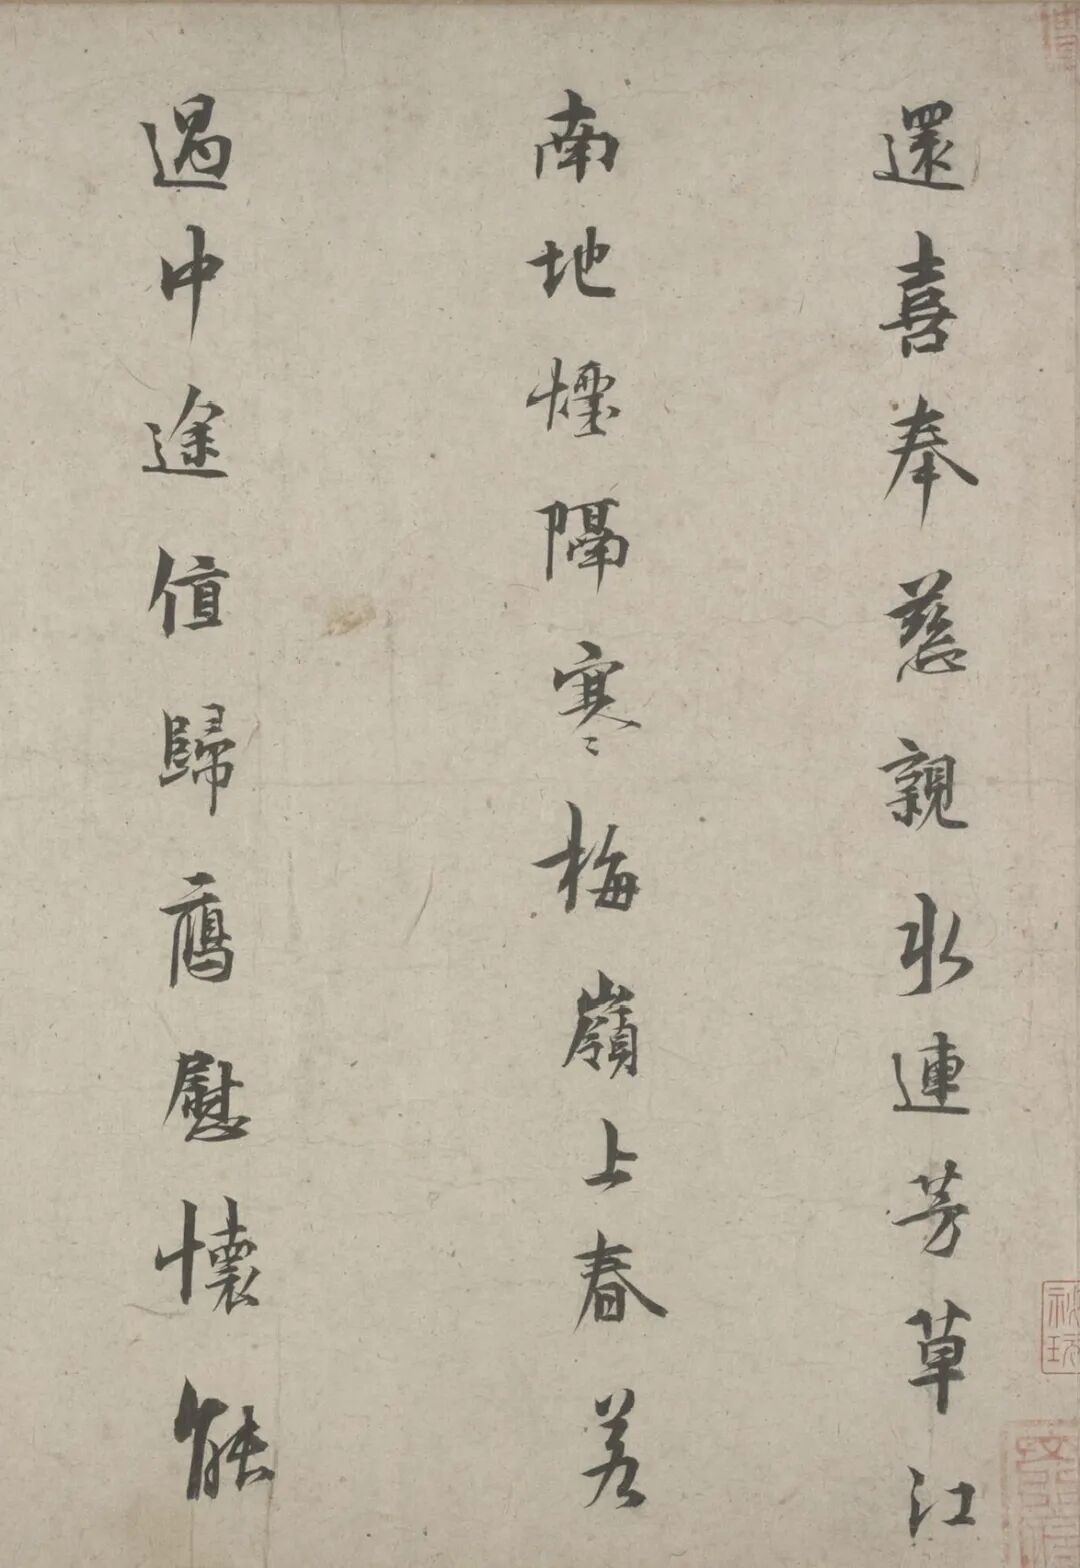 還喜奉慈親水連芳草江
南地煙隔寒梅嶺上春若
過中途值歸鴈慰懷能